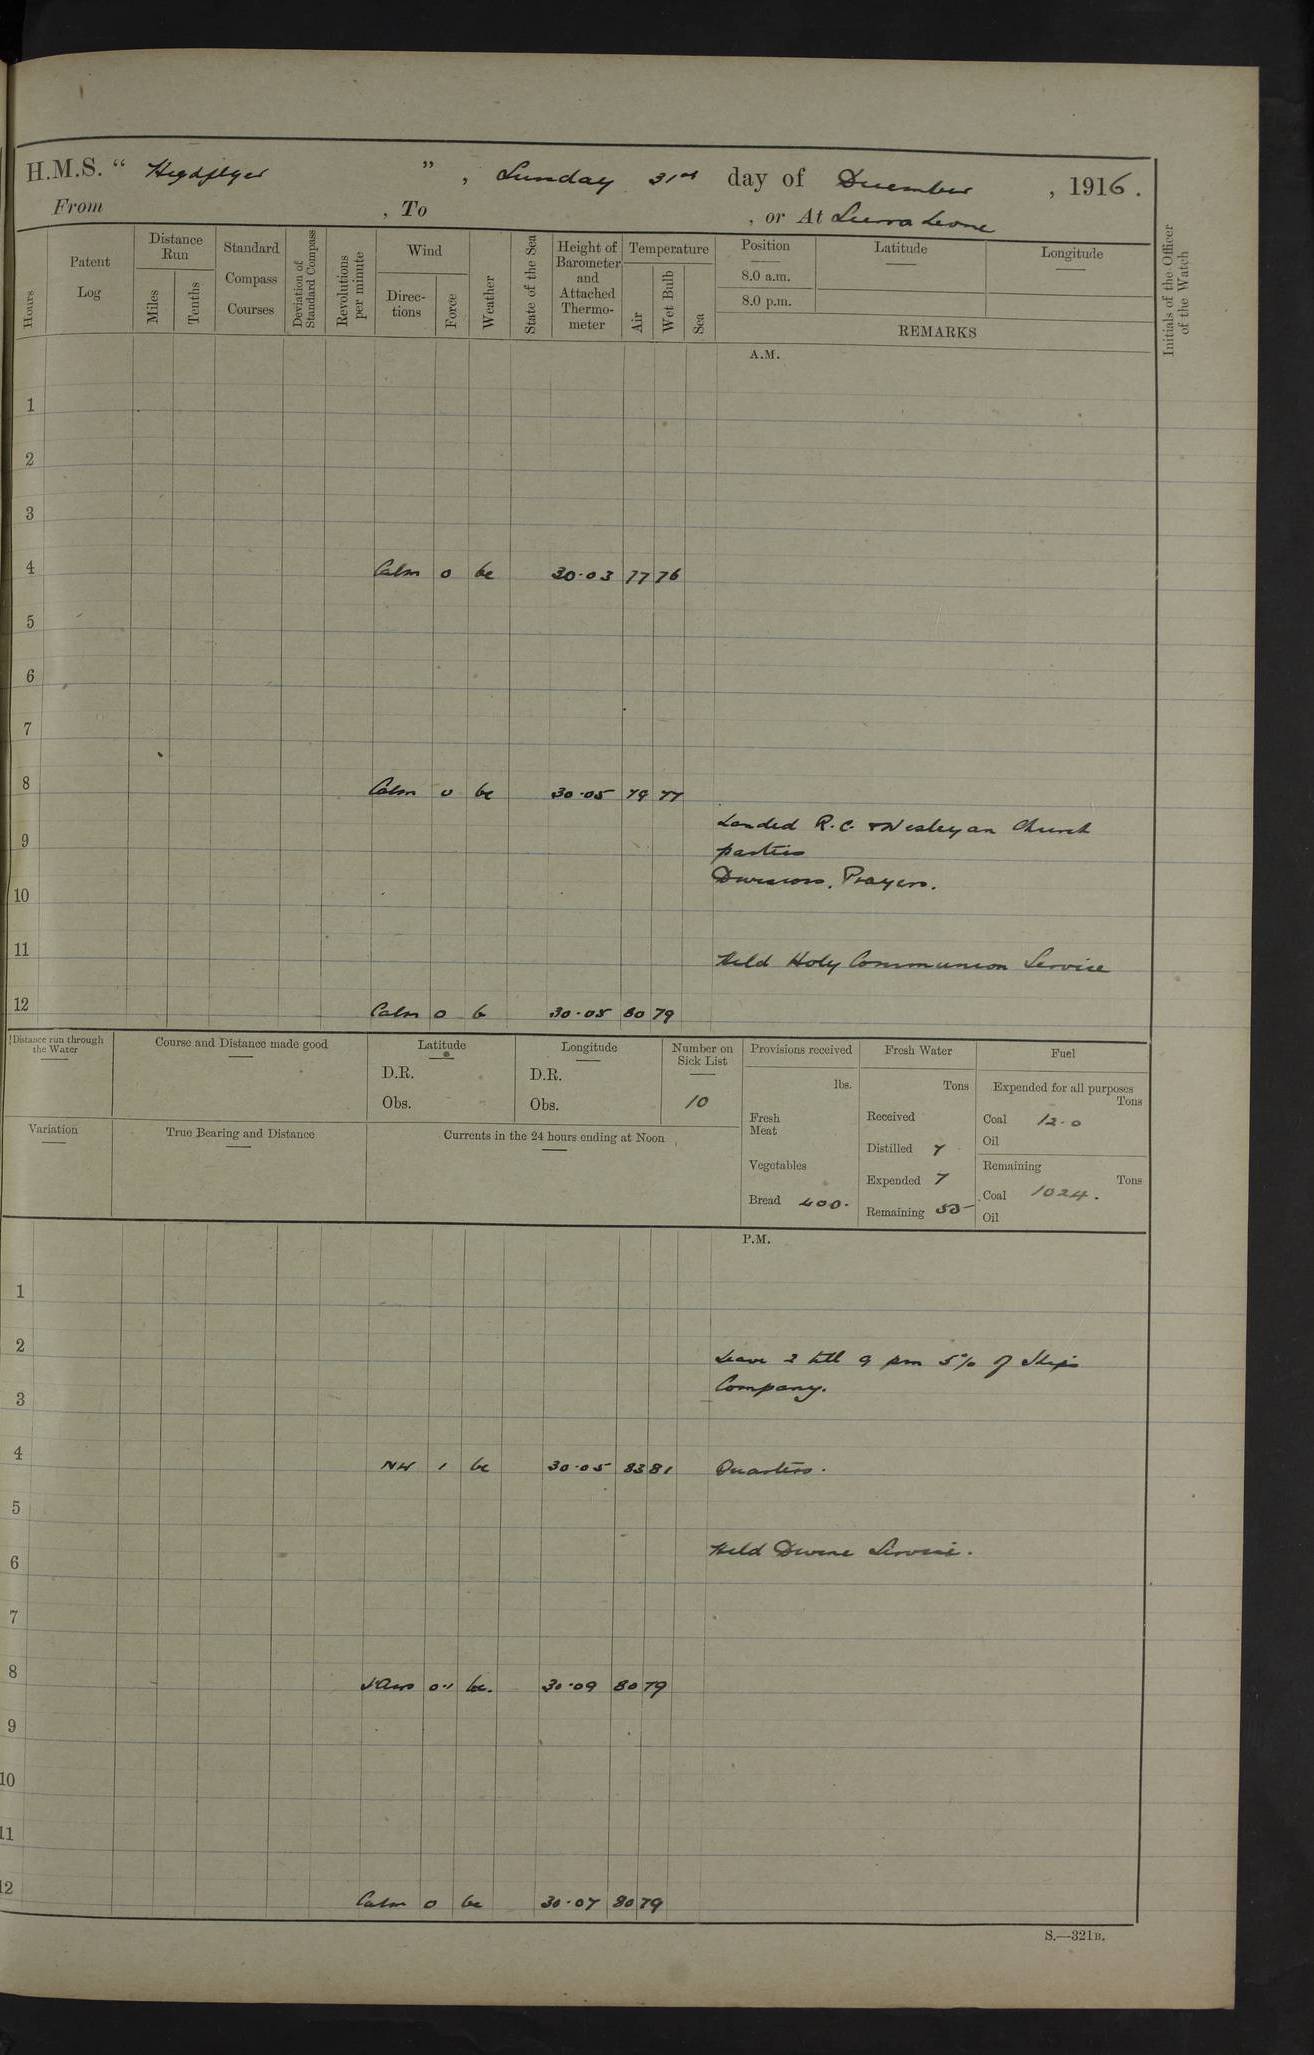 H.M.S. " Highflyer ", Sunday 31st day of December, 1916.
From , To , or At Sierra Leone
Hours
Patent Log
Distance Run
Miles
Tenths
Standard Compass Courses
Deviation of Standard Compass
Revolutions per minute
Wind
Directions
Force
Weather
State of the Sea
Height of Barometer and Attached Thermometer
Temperature
Air
Wet Bulb
Sea
Position
8.0 a.m.
8.0 p.m.
Latitude
Longitude
REMARKS
Initials of the Officer of the Watch
A.M.
1
2
3
4 Calm 0 bc 30.03 77 76
5
6
7
8 Calm 0 bc 30.05 79 77
Landed R.C. & Wesleyan Church
9
parties
Divisions. Prayers.
10
11 Held Holy Communion Service
12 Calm 0 b 30.05 80 79
Distance run through the Water
Course and Distance made good
Latitude
D.R.
Obs.
Longitude
D.R.
Obs.
Number on Sick List
10
Provisions received
lbs.
Fresh Meat
Vegetables
Bread 400.
Fresh Water
Tons
Received
Distilled 7
Expended 7
Remaining
Fuel
Expended for all purposes
Tons
Coal 12.0
Oil
Remaining
Tons
Coal 1024.
Oil
Variation
True Bearing and Distance
Currents in the 24 hours ending at Noon
P.M.
1
2
Leave 2 till 9 pm 5% of Ships
Company.
3
4 NW 1 bc 30.05 83 81 Quarters.
5
Held Divine Service.
6
7
8 0.1 bc. 30.09 80 79
9
10
11
12 Calm 0 bc 30.07 80 79
S.—321B.